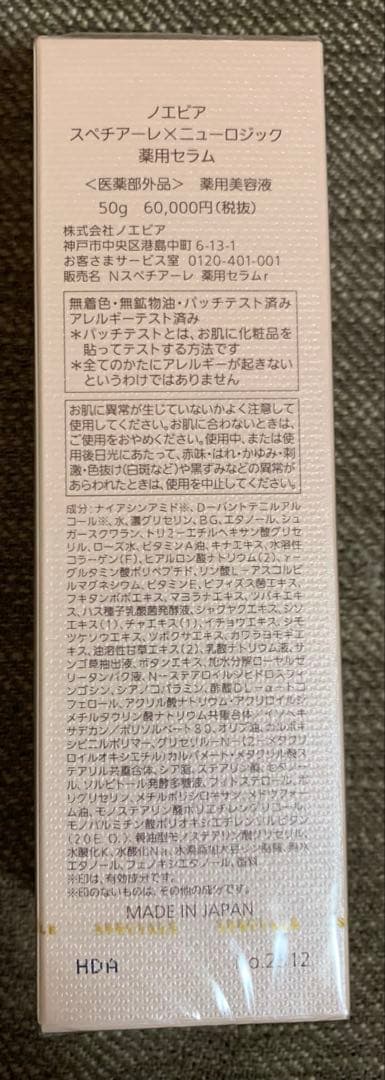 ノエビア
スペチアーレ×ニューロジック
薬用セラム
＜医薬部外品＞ 薬用美容液
50g 60,000円(税抜)
株式会社ノエビア
神戸市中央区港島中町 6-13-1
お客さまサービス室 0120-401-001
販売名 Nスペチアーレ 薬用セラムr
無着色・無鉱物油・パッチテスト済み
アレルギーテスト済み
＊パッチテストとは、お肌に化粧品を
貼ってテストする方法です
＊全てのかたにアレルギーが起きない
というわけではありません
お肌に異常が生じていないかよく注意して
使用してください。お肌に合わないときは、
ご使用をおやめください。使用中、または使
用後日光にあたって、赤味・はれ・かゆみ・刺
激・色抜け(白斑など)や黒ずみなどの異常が
あらわれたときは、使用を中止してください。
成分:ナイアシンアミド※、D-パントテニルアル
コール※、水、濃グリセリン、BG、エタノール、シュ
ガースクワラン、トリ2-エチルヘキサン酸グリセ
リル、ローズ水、ビタミンA油、キナエキス、水溶性
コラーゲン(F)、ヒアルロン酸ナトリウム(2)、γ-
グルタミン酸ポリペプチド、リン酸L-アスコルビ
ルマグネシウム、ビタミンE、ビフィズス菌エキス、
フキタンポポエキス、マヨラナエキス、ツバキエキ
ス、ハス種子乳酸菌発酵液、シャクヤクエキス、シソ
エキス(1)、チャエキス(1)、イチョウエキス、シモ
ツケソウエキス、ツボクサエキス、カワラヨモギエ
キス、油溶性甘草エキス(2)、乳酸ナトリウム液、サ
ンゴ草抽出液、ボタンエキス、加水分解ローヤルゼ
リータンパク液、N-ステアロイルジヒドロスフィ
ンゴシン、シアノコバラミン、酢酸DL-α-トコ
フェロール、アクリル酸ナトリウム・アクリロイルジ
メチルタウリン酸ナトリウム共重合体/イソヘキ
サデカン/ポリソルベート80、オリブ油、カルボキ
シビニルポリマー、グリセリル-N-(2-メタクリ
ロイルオキシエチル)カルバメート・メタクリル酸ス
テアリル共重合体、シア脂、ステアリン酸、
ル、ソルビトール発酵多糖液、フィトステロール、ポ
リグリセリン、メチルポリシロキサン、メドウフォー
ム油、モノステアリン酸ポリエチレングリコール、
モノパルミチン酸ポリオキシエチレンソルビタン
(20E.O.)、親油型モノステアリン酸グリセリル、
水酸化K、水酸化Na、水素添加大豆リン脂質、無水
エタノール、フェノキシエタノール、香料
※印は、有効成分です。
※印のないものは、その他の成分です。
MADE IN JAPAN
HDA